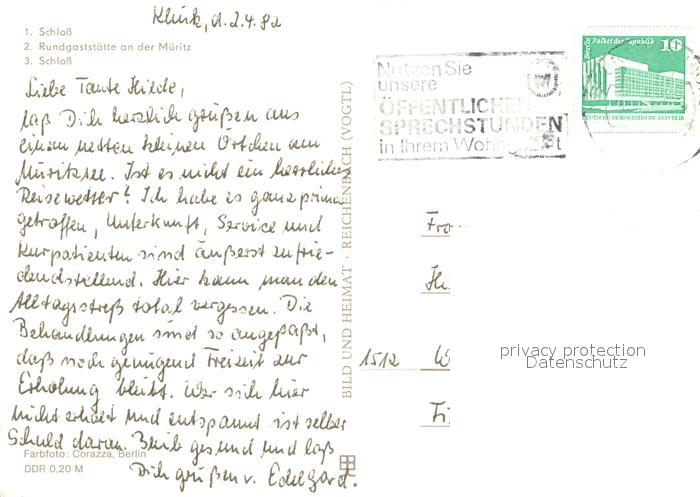 Klink, d. 2.4.82
1. Schloß
2. Rundgaststätte an der Müritz
3. Schloß
Liebe Tante Hilde,
laß Dich herzlich grüßen aus
einem netten kleinen Örtchen am
Müritzsee. Ist es nicht ein herrliches
Reisewetter? Ich habe es ganz prima
getroffen, Unterkunft, Service und
Kurpatienten sind äußerst zufrie-
denstellend. Hier kann man den
Alltagsstreß total vergessen. Die
Behandlungen sind so angepaßt,
daß noch genügend Freizeit zur
Erholung bleibt. Wer sich hier
nicht erholt und entspannt ist selber
Schuld daran. Bleib gesund und laß
Dich grüßen v. Edelgard.
Farbfoto: Corazza, Berlin
DDR 0,20 M
BILD UND HEIMAT · REICHENBACH (VOGTL)
Nutzen Sie
unsere
ÖFFENTLICHEN
SPRECHSTUNDEN
in Ihrem
Berlin Palast der Republik 10
DEUTSCHE DEMOKRATISCHE REPUBLIK
Fr
H
1512 W
Fi
privacy protection
Datenschutz